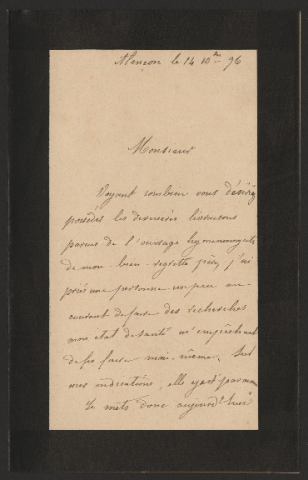 Alençon le 14 Xbre 96
Monsieur
Voyant combien vous désirez
posséder les dernières livraisons
parues de l'ouvrage
de mon bien regretté père, j'ai
prié une personne un peu au
courant de faire des recherches
mon état de santé m'empêchant
de les faire moi-même. Sur
mes indications, elle y est parvenue
Je mets donc aujourd'hui